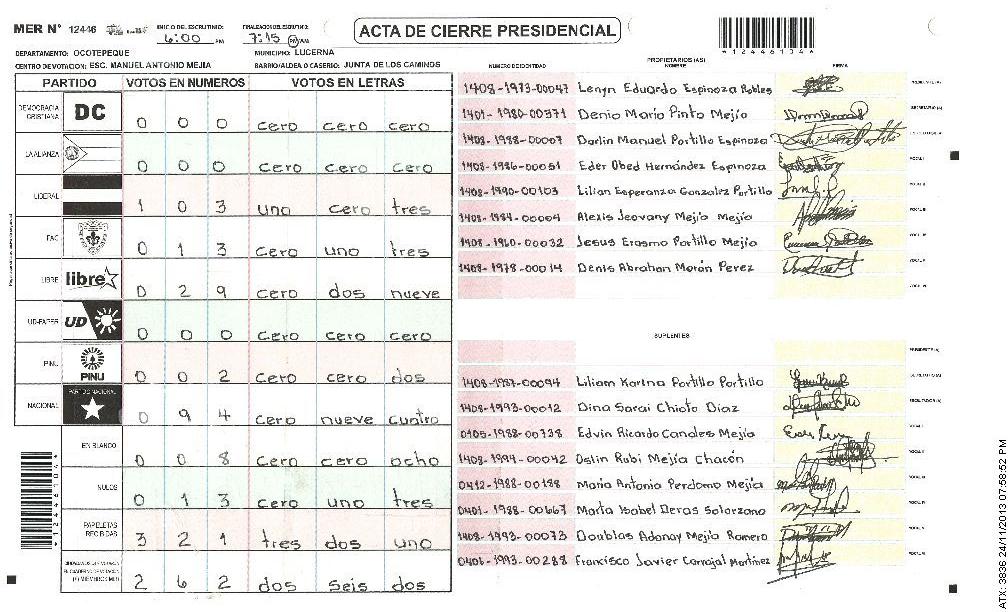 MER N° 12446
INICIO DEL ESCRUTINIO: 6:00 PM
FINALIZACION DEL ESCRUTINIO: 7:15 PM
ACTA DE CIERRE PRESIDENCIAL
*124461046*
DEPARTAMENTO: OCOTEPEQUE
MUNICIPIO: LUCERNA
CENTRO DE VOTACION: ESC. MANUEL ANTONIO MEJIA
BARRIO/ALDEA O CASERIO: JUNTA DE LOS CAMINOS
PARTIDO VOTOS EN NUMEROS VOTOS EN LETRAS
DEMOCRACIA CRISTIANA DC 0 0 0 cero cero cero
LA ALIANZA 0 0 0 cero cero cero
LIBERAL 1 0 3 uno cero tres
FAC 0 1 3 cero uno tres
LIBRE libre 0 2 9 cero dos nueve
UD-FAPER UD 0 0 0 cero cero cero
PINU PINU 0 0 2 cero cero dos
NACIONAL PARTIDO NACIONAL 0 9 4 cero nueve cuatro
EN BLANCO 0 0 8 cero cero ocho
NULOS 0 1 3 cero uno tres
PAPELETAS RECIBIDAS 3 2 1 tres dos uno
2 6 2 dos seis dos
PROPIETARIOS (AS)
NUMERO DE IDENTIDAD NOMBRE FIRMA
1408-1973-00047 Lenyn Eduardo Espinoza Robles
1401-1980-00371 Denio Mario Pinto Mejía
1408-1988-00007 Darlin Manuel Portillo Espinoza
1408-1986-00051 Eder Obed Hernández Espinoza
1408-1990-00103 Lilian Esperanza Gonzalez Portillo
1408-1984-00004 Alexis Jeovany Mejía Mejía
1408-1960-00032 Jesus Erasmo Portillo Mejía
1408-1978-00014 Denis Abrahan Morán Perez
SUPLENTES
1408-1987-00094 Liliam Karina Portillo Portillo
1408-1993-00012 Dina Sarai Chioto Díaz
0105-1988-00738 Edvin Ricardo Canales Mejía
1408-1994-00042 Oslin Rubi Mejía Chacón
0412-1988-00188 Maria Antonia Perdomo Mejía
0401-1988-00667 María Isabel Deras Solorzano
1408-1993-00073 Doublas Adonay Mejía Romero
0406-1993-00288 Francisco Javier Carvajal Martínez
ATX: 3836 24/11/2013 07:58:52 PM